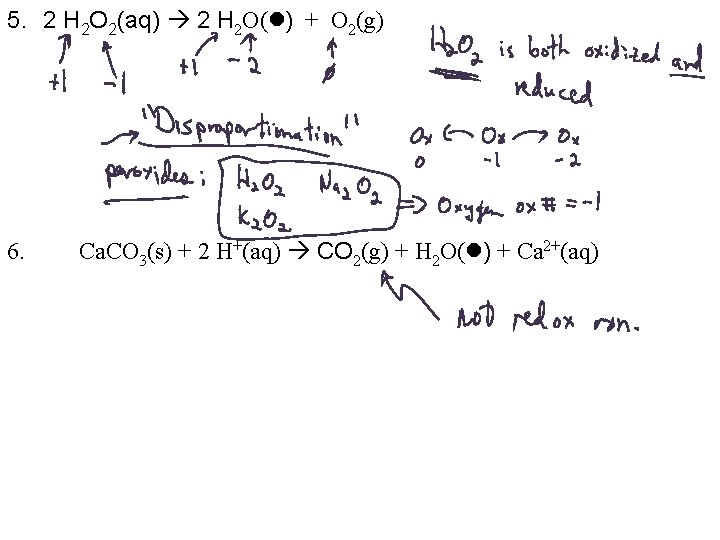 5. 2 H2O2(aq) → 2 H2O(●) + O2(g)
+1 -1 +1 -2 0
H2O2 is both oxidized and reduced
→ "Disproportionation"
Ox ← Ox → Ox
0 -1 -2
peroxides: H2O2 Na2O2
K2O2
⇒ Oxygen ox # = -1
6. Ca.CO3(s) + 2 H+(aq) → CO2(g) + H2O(●) + Ca2+(aq)
Not redox rxn.